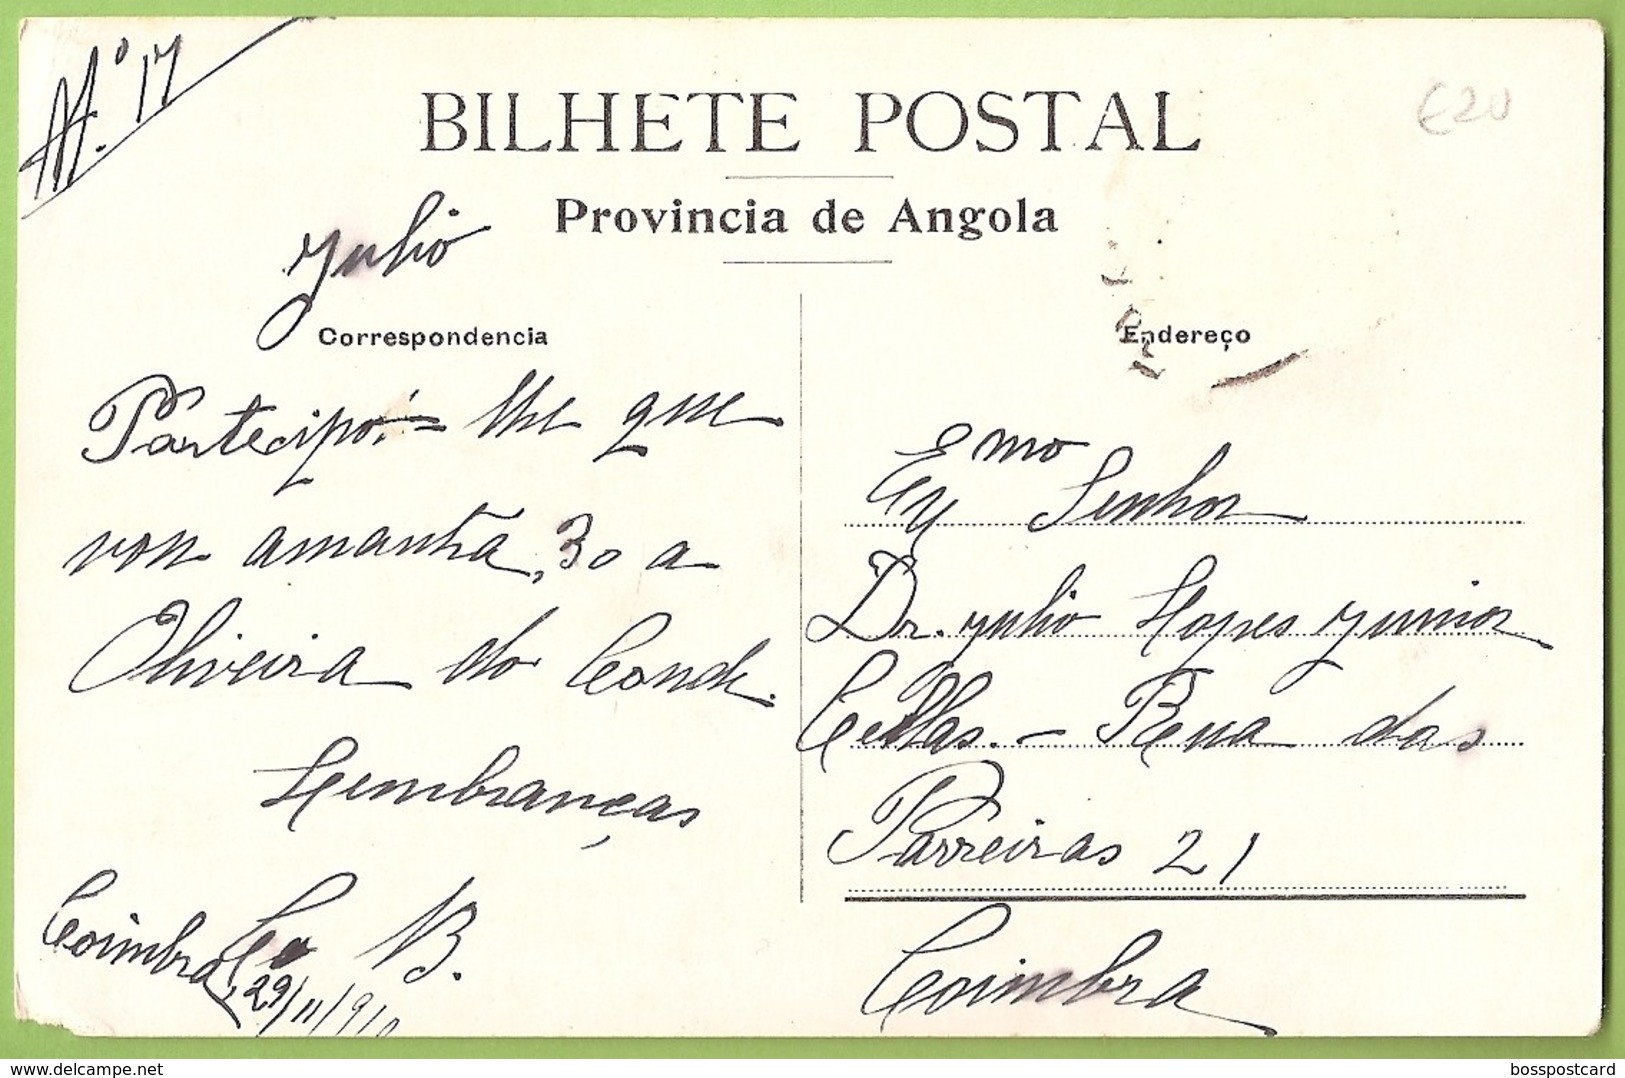 Nº 17
BILHETE POSTAL
€20
Provincia de Angola
Julio
Correspondencia
Endereço
Partecipo-lhe que
vou amanhã, 30 a
Oliveira do Conde.
Lembranças
Coimbra, 29/11/910
Exmo Senhor
Dr. Julio Lopes Junior
Cellas. - Rua das
Parreiras 21
Coimbra
Website: delcampe.net
bosspostcard